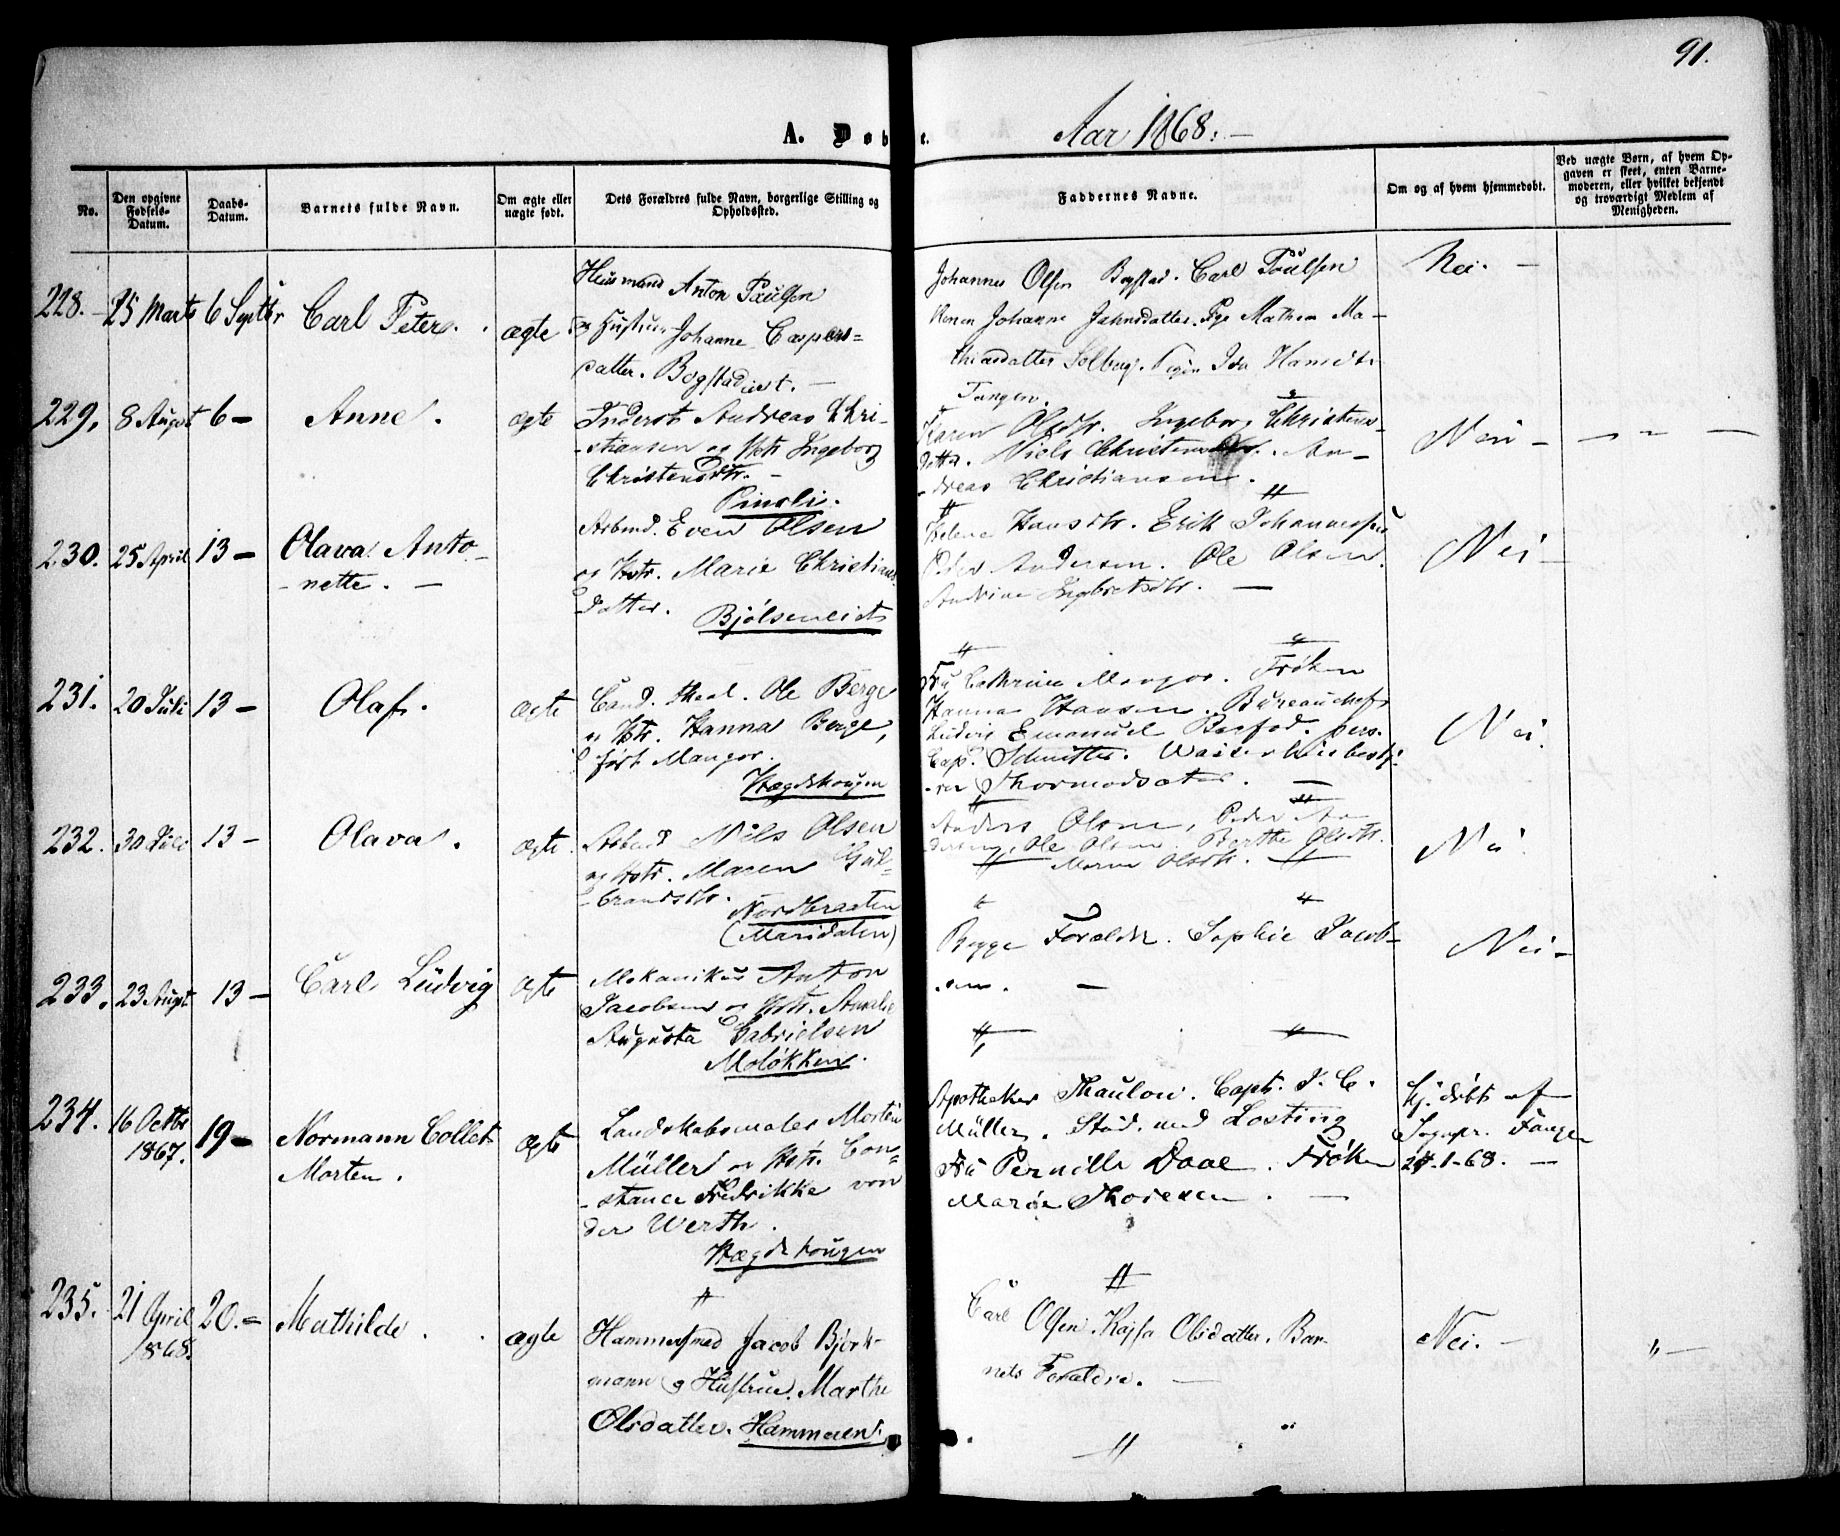 91.
A. Døb t. Aar 1868. —
No.
Den opgivne Fødsels-Datum.
Daabs-Datum.
Barnets fulde Navn.
Om ægte eller uægte født.
Dets Forældres fulde Navn, borgerlige Stilling og Opholdssted.
Faddernes Navne.
Om og af hvem hjemmedøbt.
Ved uægte Børn, af hvem Opgaven er skeet, enten Barnemoderen, eller hvilket bekjendt og troværdigt Medlem af Menigheden.
228. 25 Marts 6 Septbr Carl Peter. ægte
Husmand Anton Paulsen
og Hustrue Johanne Caspers=
datter. Bogstadeiet. —
Johannes Olsen Bogstad. Carl Poulsen
Konen Johanne Jahnsdatter. Pige Mathea Ma-
thiasdatter Solberg. Pigen Ida Hansdtr
Tangen.
Nei. —
229. 8 August 6 — Anne. ægte
Inderst Andreas Chri-
-stiansen og Hstr Ingeborg
Christensdtr. —
Pinsli.
Karen Olsdtr. Ingeborg Christens-
datter. Niels Christensen. An-
-dreas Christiansen.
Nei — — " —
230. 25 April 13 — Olava Anto-
-nette. —
Arbmd. Even Olsen
og Hstr. Marie Christians
datter. Bjølseneiet
Helene Hansdtr. Erik Johannessen
Peder Andersen. Ole Olsen.
Andrine Ingebretsdtr. —
Nei —
231. 20 Juli 13 — Olaf. ægte
Cand. theol. Ole Berge
og Hstr. Hanna Berge,
født Mangor.
Hægdehougen
Fru Cathrine Mangor. Frøken
Hanna Hansen. Bureauchef
Emanuel
Cap. Waisenhusbesty-
-rer Thormodsæter. —
Nei.
232. 30 Juli 13 — Olava. ægte
Arbmd Nils Olsen
og Hstr. Maren Gul-
-brandsdtr.
Nordbraaten
(Maridalen)
Anders Olsen, Peder An
dersen, Ole Olsen. Berthe Olsdtr.
Maren Olsdtr.
Nei
233. 23 Augst 13 — Carl Ludvig ægte
Mekanikus Anton
Jacobsen og Hstr. Amalie
Augusta Gabrielsen
Moløkken.
Begge Forældre. Sophie Jacob-
-sen. —
Nei —
234. 16 Octbr
1867. 19 — Normann Collet
Morten. ægte
Landskabsmaler Morten
Müller og Hstr. Con-
-stance Fredrikke von
der Werth.
Hægdehougen
Apotheker Thaulow. Capt. J. C.
Müller. Stud. med Losting
Fru Pernille Daae. Frøken
Marie Thoresen. —
Hj. døbt af
Sognepr. Fangen
24-1-68. —
235. 21 April
1868. 20. — Mathilde. ægte
Hammersmed Jacob Björk-
mann og Hustrue Marthe
Olsdatter. Hammeren.
Carl Olsen. Kajsa Olsdatter. Bar-
nets Forældre. —
Nei. — " —